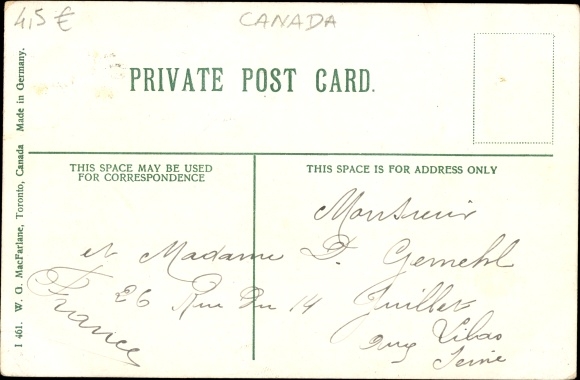 4,5 €
CANADA
PRIVATE POST CARD.
THIS SPACE MAY BE USED
FOR CORRESPONDENCE
THIS SPACE IS FOR ADDRESS ONLY
Monsieur
et Madame D.
26 Rue Du 14 Juillet
Seine
France
I 461. W. G. MacFarlane, Toronto, Canada Made in Germany.